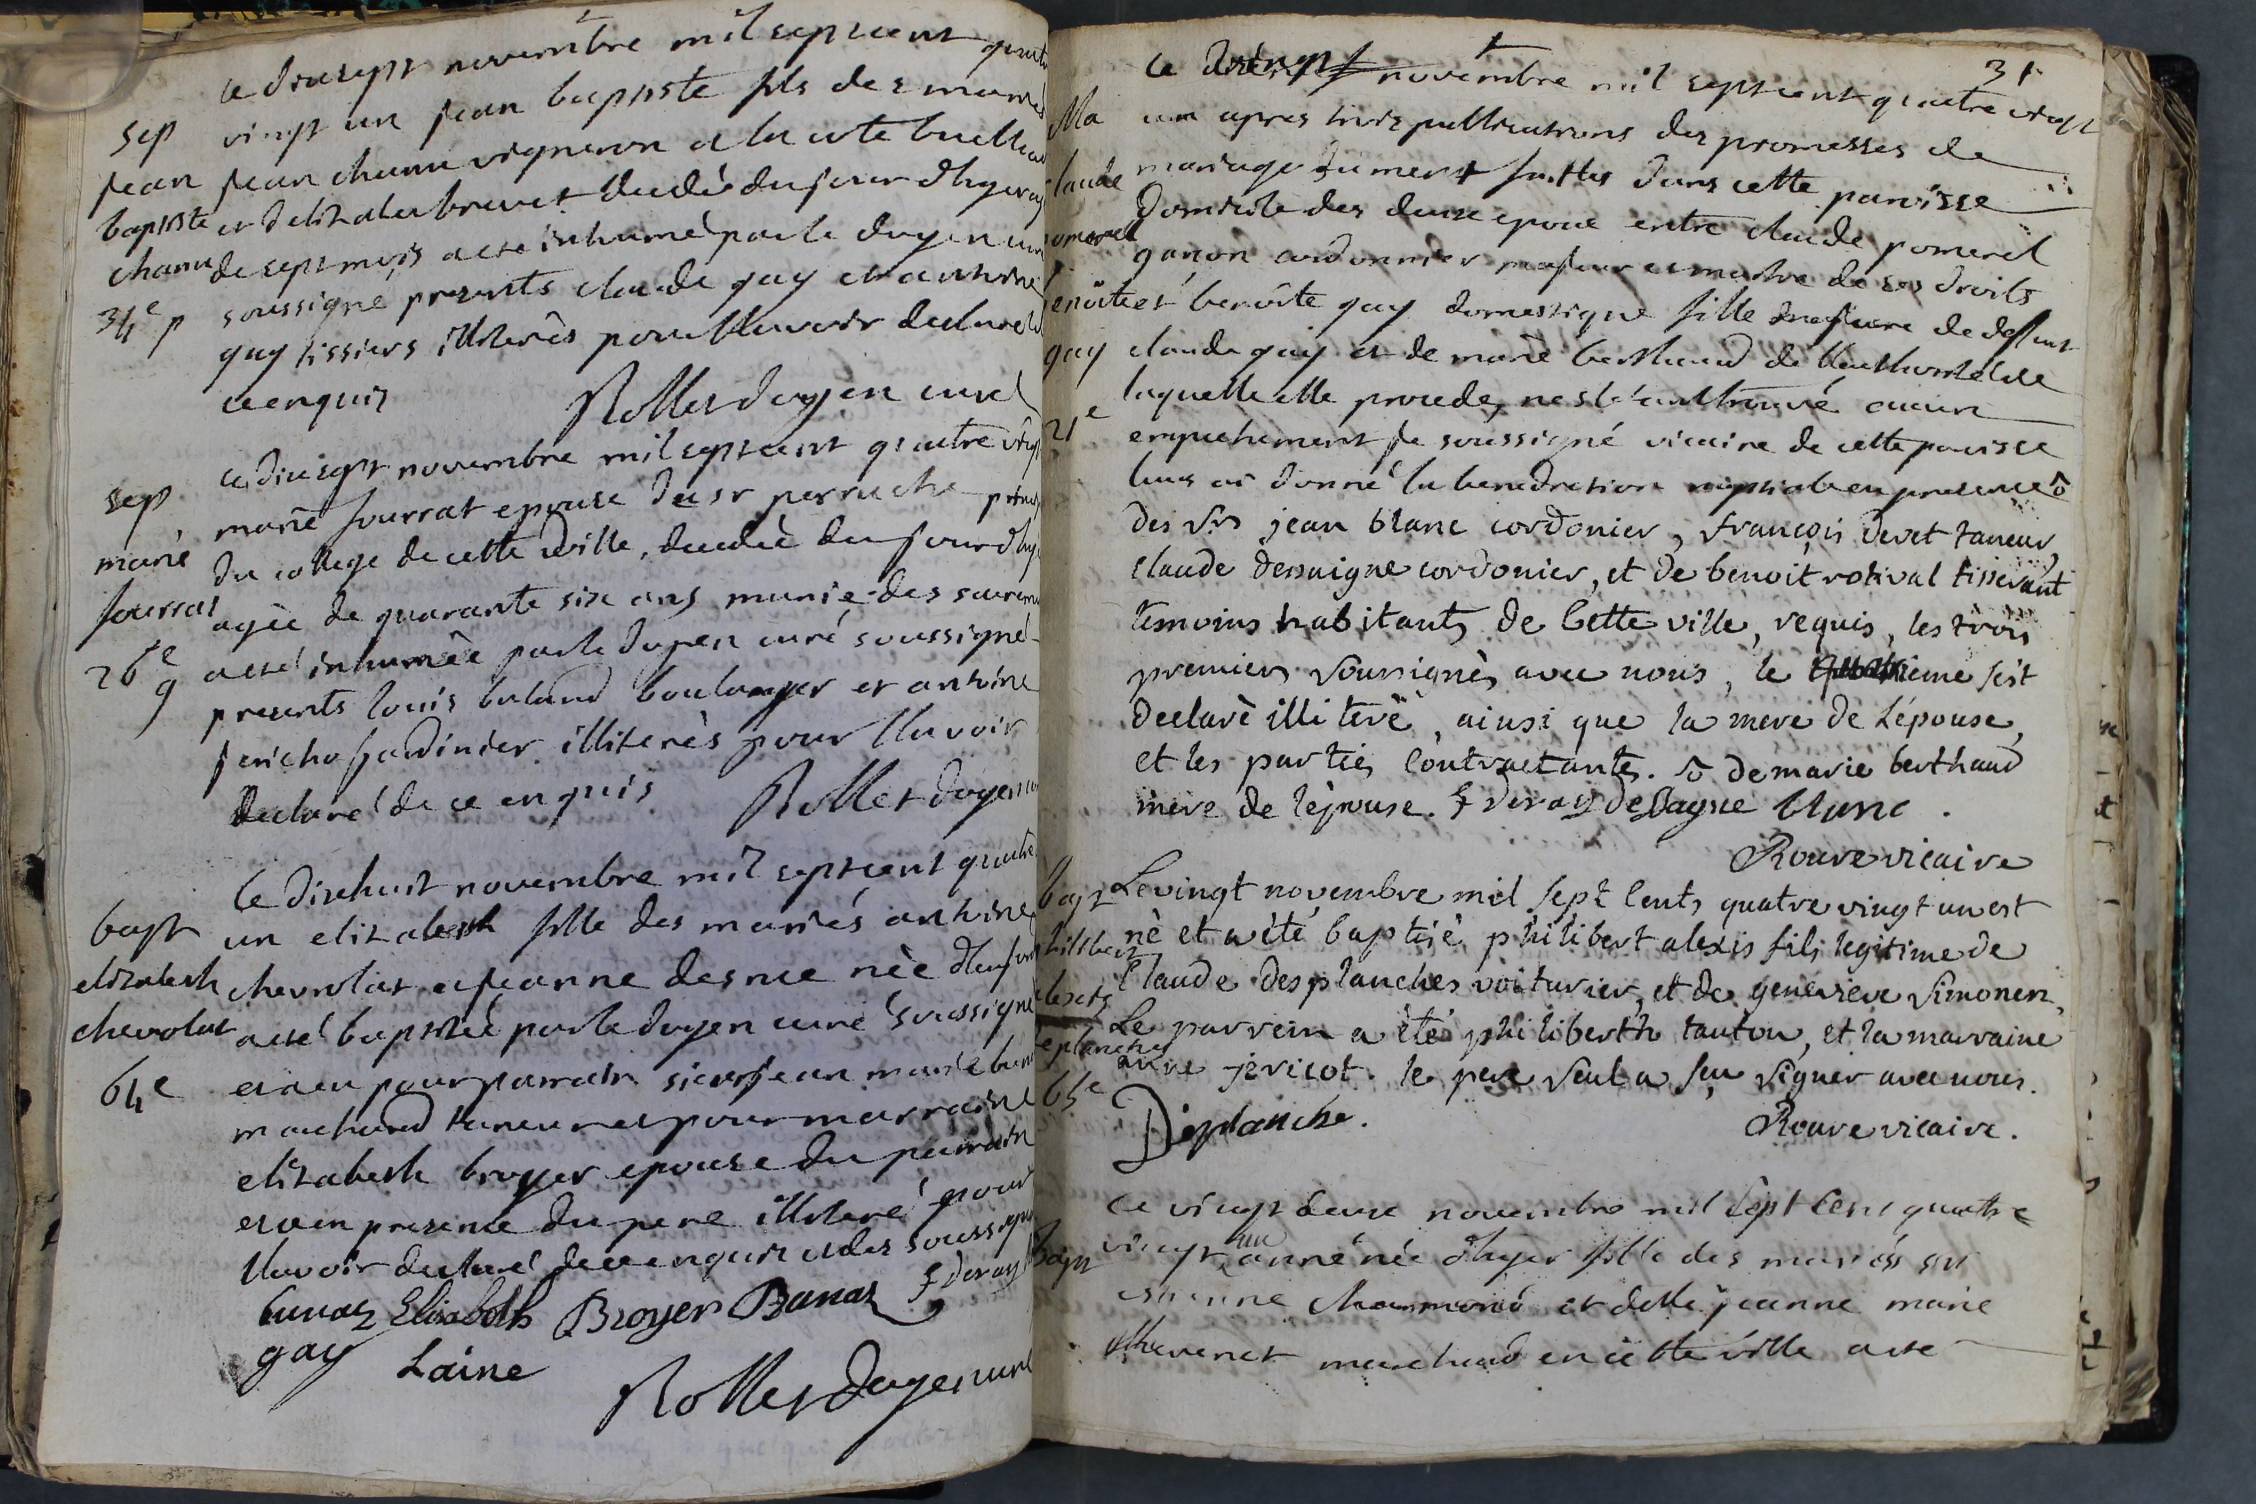 le dixsept novembre mil sept cent quatre
sep
vingt un jean baptiste fils des mariés
jean
jean chanu vigneron et
baptiste
et d'elizabet brevet decedé du jour d'hyer agé
chanu
de sept mois a eté inhumé par le doyen curé
34e p
soussigné presents claude gay et antoine
gay tissiers illiterés pour l'avoir declaré de
ce enquis
Rollet doyen curé
le dixsept novembre mil sept cent quatre vingt
sep
marie fourrat epouse du sr perruche
marie
du college de cette ville, decedée du jour d'hyer
fourrat
agée de quarante six ans munie des sacrements
26e g
a eté inhumée par le doyen curé soussigné
presents louis baland boulanger et antoine
jericho jardinier illiterès pour l'avoir
declaré de ce enquis
Rollet doyen curé
le dixhuit novembre mil sept cent quatre
bapt
un elizabeth fille des mariés antoine
elizabeth
chevrolat et jeanne desrue née
chevrolat
a eté baptisée par le doyen curé soussigné
64e
et a eu pour parrain sieur jean marie
marchand taneur et pour marraine
elizabeth broyer epouse du parrain
et a eu presence du pere illiteré pour
l'avoir declaré de ce enquis et des soussignés
bunaz Elisabeth Broyer Banaz f devay
gay
Laine
Rollet doyen curé
31
le vingt novembre mil sept cent quatre vingt
Ma
un apres trois publications des promesses de
mariage dument faittes dans cette paroisse
claude
domicile des deux epoux entre claude pomerel
pomerel
ganon cordonnier majeur et maitre de ses droits
benoite
et benoite gay domestique fille majeure de deffunt
gay
claude gay et de marie berthaud de l'authorité de
laquelle elle procede, ne s'etant trouvé aucun
21e
empechement je soussigné vicaire de cette paroisse
leurs ai donné la benediction nuptiale en presence
des srs jean blanc cordonier, françois devet taneur,
claude dessaigne cordonier, et de benoit rotival tisserant
temoins habitants de Cette ville, requis, les trois
premiers soussignés avec nous, le quatrieme s'est
declaré illiteré, ainsi que la mere de l'épouse,
et les parties Contractantes. de marie berthaud
mere de l'épouse. f devay dessagne blanc
Rouve vicaire
bapt
Le vingt novembre mil sept Cents quatre vingt un est
philibert
né et a été baptisé philibert alexis fils legitime de
Claude desplanches voiturier, et de genevieve simonen,
alexis
Le parrein a été philiberth tauton, et la marraine
deplanches
anne jericot. le pere seul a seu signer avec nous.
65e
Deplanche.
Rouve vicaire.
le vingt deux novembre mil sept cent quatre
bapt
vingt un anne née d'hyer fille des mariés sr
estienne charmond et delle jeanne marie
thevenet marchand en cette ville a eté